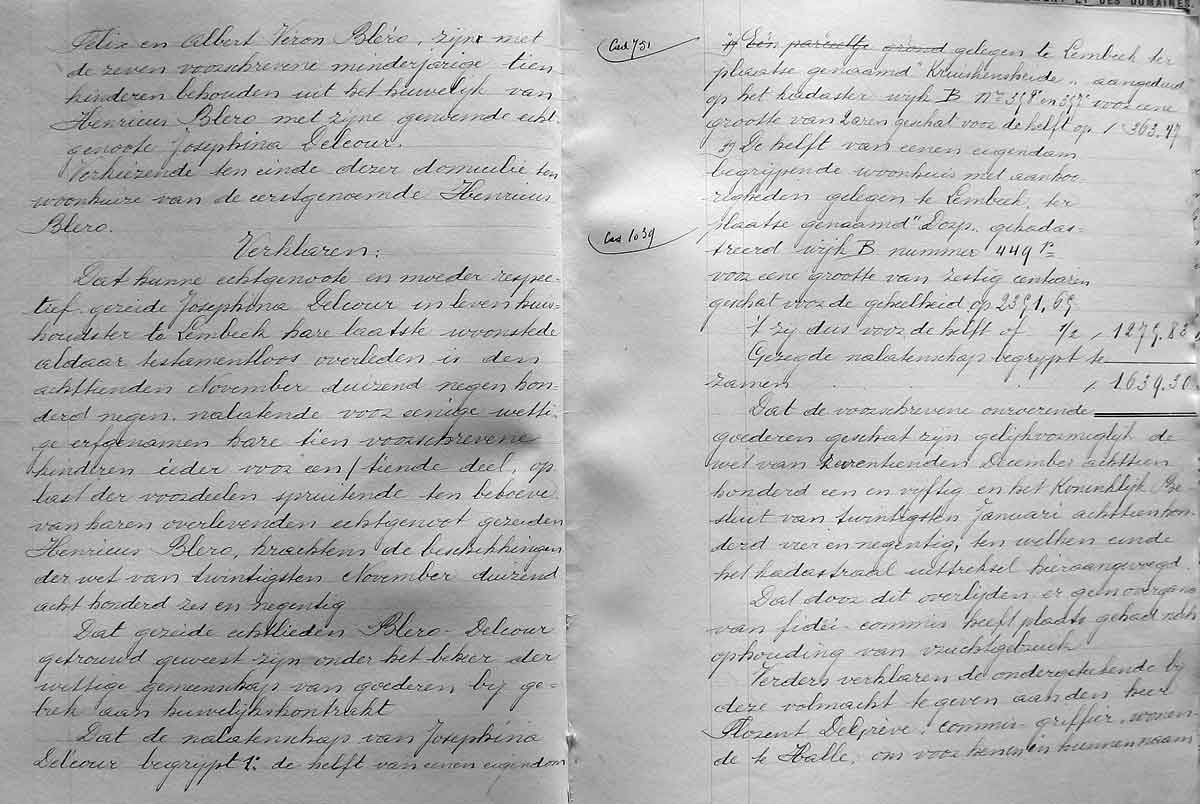 MENT ET DES DOMAINES.
Felix en Albert Veron Bléro, zijn met
de zeven voorschrevene minderjarige tien
kinderen behouden uit het huwelijk van
Henricus Blero met zijne genoemde echt-
genoote Josephina Delcour.
Verkiezende ten einde dezer domicilie ten
woonhuize van de eerstgenoemde Henricus
Blero.
Verklaren:
Dat hunne echtgenoote en moeder respec-
tief gezeide Josephina Delcour in leven huis-
houdster te Lembeek hare laatste woonstede
aldaar testamentloos overleden is den
achttienden November duizend negen hon-
derd negen, nalatende voor eenige wetti-
ge erfgenamen hare tien voorschrevene
kinderen ieder voor een/tiende deel, op
last der voordeelen spruitende ten behoeve
van haren overlevenden echtgenoot gezeiden
Henricus Blero, krachtens de beschikkingen
der wet van twintigsten November duizend
acht honderd zes en negentig
Dat gezeide echtlieden Blero-Delcour
getrouwd geweest zijn onder het beheer der
wettige gemeenschap van goederen bij ge-
brek aan huwelijkskontrakt
Dat de nalatenschap van Josephina
Delcour begrijpt 1: de helft van eenen eigendom
Cad 751
Een parceeltje grond gelegen te Lembeek ter
plaatse genaamd "Kruiskensheide" aangeduid
op het kadaster wijk B Nrs en voor eene
grootte van 2 aren geschat voor de helft op 363.47
De helft van eenen eigendom
begrijpende woonhuis met aanhoo-
righeden gelegen te Lembeek, ter
Cas 1039
plaatse genaamd "Dorp" gekadas-
treerd wijk B nummer 449
voor eene grootte van zestig centiaren
geschat voor de geheelheid op 2551.65
't zij dus voor de helft of 1/2 1275.83
Gezegde nalatenschap begrypt te
zamen 1.639.30
Dat de voorschrevene onroerende
goederen geschat zijn gelijkvormiglijk de
wet van zeventienden December achttien
honderd een en vyftig en het Koninklijk Be-
sluit van twintigsten Januari achttienhon-
derd vier en negentig, ten welken einde
het kadastraal uittreksel hieraangevoegd.
Dat door dit overlijden er geen overgang
van fidei-commis heeft plaats gehad noch
ophouding van vruchtgebruik
Verders verklaren de ondergeteekende bij
deze volmacht te geven aan den heer
Florent DeGreve, commis-griffier, wonen-
de te Halle, om voor hen en in hunnen naam